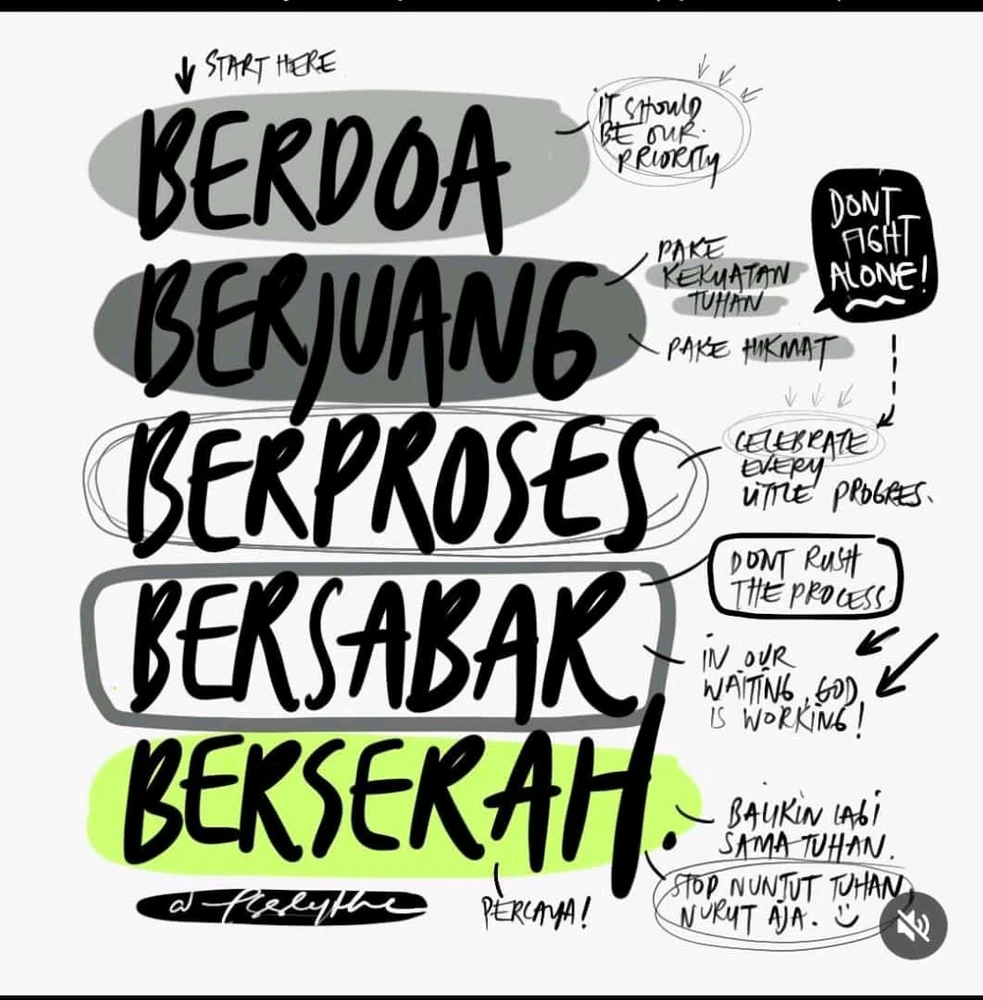 START HERE
BERDOA
IT SHOULD
BE OUR
PRIORITY
BERJUANG
PAKE
KEKUATAN
TUHAN
PAKE HIKMAT
DONT
FIGHT
ALONE!
BERPROSES
CELEBRATE
EVERY
LITTLE PROGRES.
BERSABAR
DONT RUSH
THE PROCESS
IN OUR
WAITING, GOD
IS WORKING!
BERSERAH.
BALIKIN LAGI
SAMA TUHAN.
PERCAYA!
STOP NUNTUT TUHAN,
NURUT AJA.